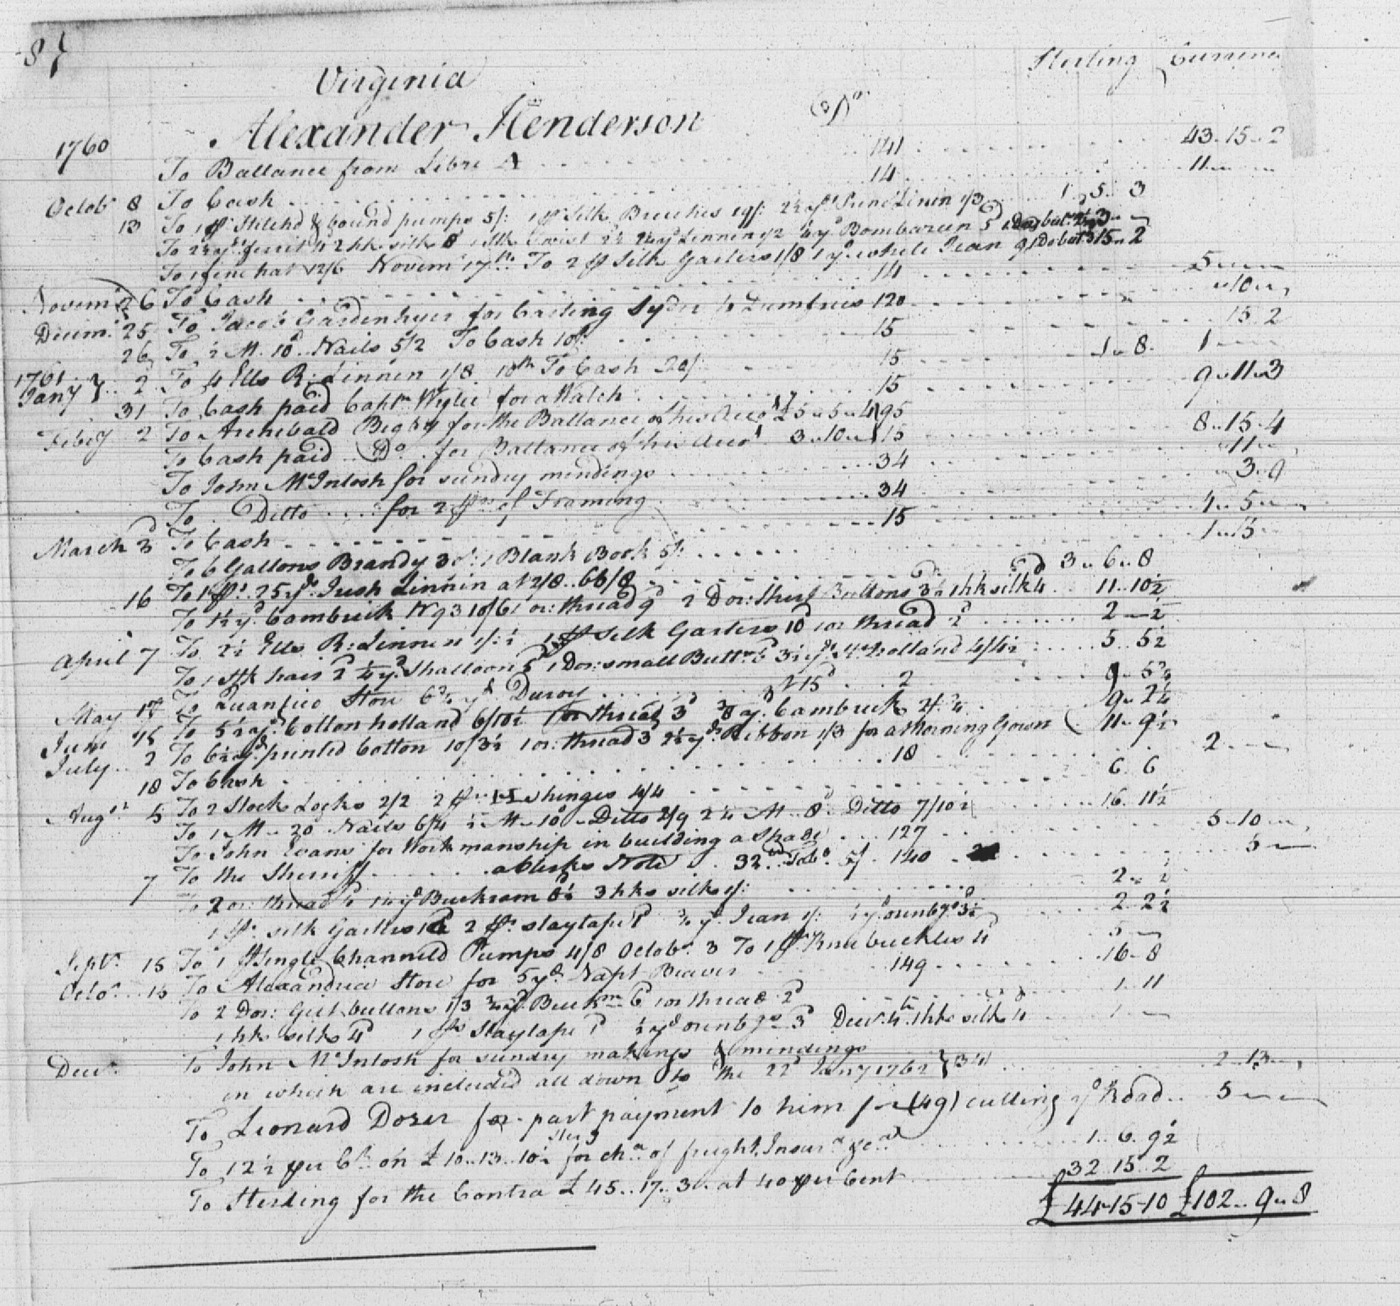 87
Sterling Currency
Virginia
Alexander Henderson Dr
1760 To Ballance from Libre A 141 43..15..2
Octobr 8 To Cash 14 11
13 To 1 pr Stitchd & bound pumps 5/: 1 pr Silk Breeches 19/: 2½ yds Linin 1/3 1 5 3
To 2½ yds 2 hks silk 1 Stk Twist Linnen Bombazeen 3
To 1 fine hat 12/6 Novemr 17th To 2 pr Silk Garters 1/8 1 yd white Jean 15 2
Novemr 26 To Cash 14 5
Decemr 25 To Jacob Gardenhyer for Carting Syder to Dumfries 120 10
26 To ½ M. 10d Nails 5/2 To Cash 10/: 15 15 2
1761 Jany 2 To 4 Ells R: Linnen 1/8 10th To Cash 20/: 15 1..8 1
31 To Cash paid Captn Wylie for a Watch 15 9..11..3
Febry 2 To Archibald Bigby for the Ballance of his Accot £5..5..4 95
To Cash paid Do for Ballance of his Accot 3..10.. 15 8..15..4
To John McIntosh for sundry mendings 34 11
To Ditto for 2 prs of Framing 34 3..9
March 3 To Cash 15 4..5
To 6 Gallons Brandy 30/: 1 Blank Book 5/: 1..15
To 1 ps. 25 yds Irish Linnin at 2/8 66/8 3..6..8
16 To 1½ yd Cambrick No 93 10/6 1 oz: thread 9d 2 Doz: Shirt Buttons 3½ 1 hk silk 4 11..10½
To 2½ Ells R: Linnen 1/:½ 1 pr Silk Garters 10d 1 oz thread 2d 2..½
April 7 To 1 Stk hair 2d ½ yd Shalloon 1 Doz: small Buttns 6d 3½ yds St: holland 4/4½ 5 5½
To Quantico Store 6¾ yds Duroy 2 9..5¾
May 17 To 5¼ yd Cotton holland 6/10½ 1 oz thread 3d 3/8 yd Cambrick 2/¾ 9..2¼
June 15
July 2 To 6½ yd printed Cotton 10/3½ 1 oz: thread 3 2½ yds Ribbon 1/3 for a Morning Gown 11..9½
18 To Cash 18 2
Augt 5 To 2 Stock Locks 2/2 2 pr. hinges 4/4 6 6
To 1 M. 20d Nails 6/4 ½ M 10d Ditto 2/9 2¼ M 8d Ditto 7/10½ 16..11½
To John Evans for Workmanship in building a Shade 127 5..10
7 To the Sherriff a Clerks Note 32 Tobo 5/ 140 5
To 2 oz: thread 1¼ yd Buckram 3 hks silk 1/: 2..½
1 pr. silk Garters 2 ps. staytape 1d ¾ yd Jean 1/: ½ yd oznbgs 3½ 2 2½
Septr 15 To 1 pr Single Channeld Pumps 4/8 Octobr 3 To 1 pr Knee buckles 4d 5
Octor 15 To Alexandria Store for 5 yds Napt Beaver 149 16..8
To 2 Doz: Gilt buttons 1/3 ¾ yd Buckm 6d 1 oz thread 2d 1..11
1 hk silk 4d 1 ps Staytape 1d ½ yd oznbgs 3d Decr 4th 1 hk silk 4 1
Decr To John McIntosh for sundry makings & mendings
in which are included all down to the 22d Jany 1762 34 2..13
To Leonard Dozer for part payment to him for (49) cutting ye Road 5
To 12½ per Ct on £10..13..10½ Sterg for cha of freight Insura &ca 1..6..9½
To Sterling for the Contra £45..17..3 at 40 per Cent 32 15 2
£44..15..10 £102..9..8